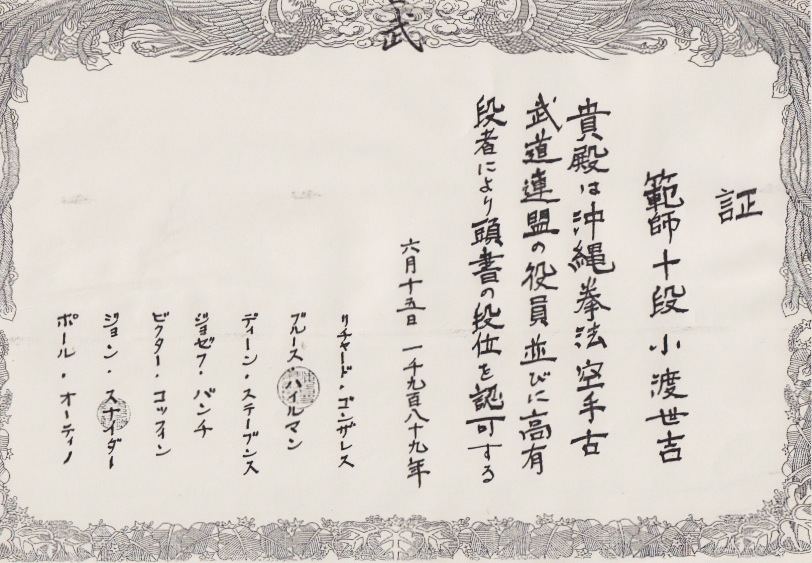 武
証
範師十段 小渡世吉
貴殿は沖縄拳法空手古
武道連盟の役員並びに高有
段者により頭書の段位を認可する
六月十五日 一千九百八十九年
リチャード・ゴンザレス
ブルース・ハイルマン
ディーン・ステーブンス
ジョゼフ・バンチ
ビクター・コッフィン
ジョン・スナイダー
ポール・オーティノ